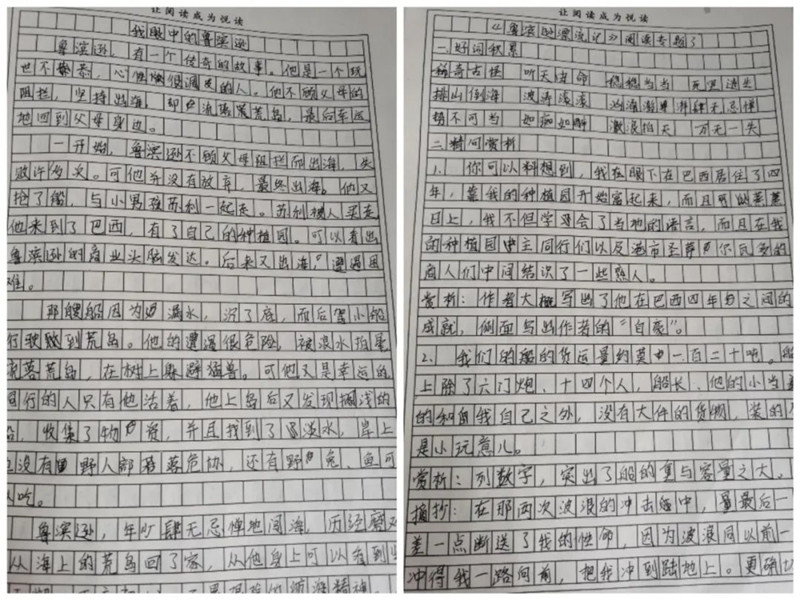 让阅读成为悦读
我眼中的鲁滨逊
鲁滨逊,有一个传奇的故事。他是一个玩
也不恭,心 调皮的人。他不顾父母的
阻拦,坚持出海,却 流落荒岛,最后幸运
地回到父母身边。
一开始,鲁滨逊不顾父母阻拦而出海,失
败许多次。可他并没有放弃,最终出海。他又
抢了船,与小男孩苏利一起走。苏利被人买走
他来到了巴西,有了自己的种植园。可以看出
鲁滨逊的商业头脑发达。后来又出海,遭遇困
难。
那艘船因为 漏水,沉了底,而后驾小船
行驶 到荒岛。他的遭遇很危险,被浪水拍晕
流落荒岛,在树上躲避猛兽。可他又是幸运的
同行的人只有他活着,他上岛后又发现搁浅的
船,收集了物资,并且找到了淡水,岸上
没有野人部落危协,还有野兔、鱼可
以吃。
鲁滨逊,年少肆无忌惮地闯海,历经
从海上的荒岛回了家,从他身上可以看到
让阅读成为悦读
《鲁滨逊漂流记》阅读专题了
一.好词积累
稀奇古怪 听天由命 稳稳当当
排山倒海 波涛滚滚 汹涌澎湃 肆无忌惮
势不可当 如痴如醉 激浪拍天 万无一失
二.精句赏析
1. 你可以料想到,我在眼下在巴西居住了四
年,当我的种植园开始富起来,而且蒸蒸
日上,我不但学会了当地的语言,而且在我
的种植园中主同行们以及港市圣萨尔瓦多的
商人们中间结识了一些熟人。
赏析:作者大概写出了他在巴西四年与之间的
成就,侧面写出作者的“自豪”。
2. 我们的船的货运量约莫一百二十吨。船
上除了六门炮、十四个人,船长、他的小当差
的和我自己之外,没有大件的货物,装的
是小玩意儿。
赏析:列数字,突出了船的重与容量之大。
摘抄:在那两次波浪的冲击中,最后一
差一点断送了我的性命,因为波浪同以前一
冲得我一路向前,把我冲到陆地上。更确切